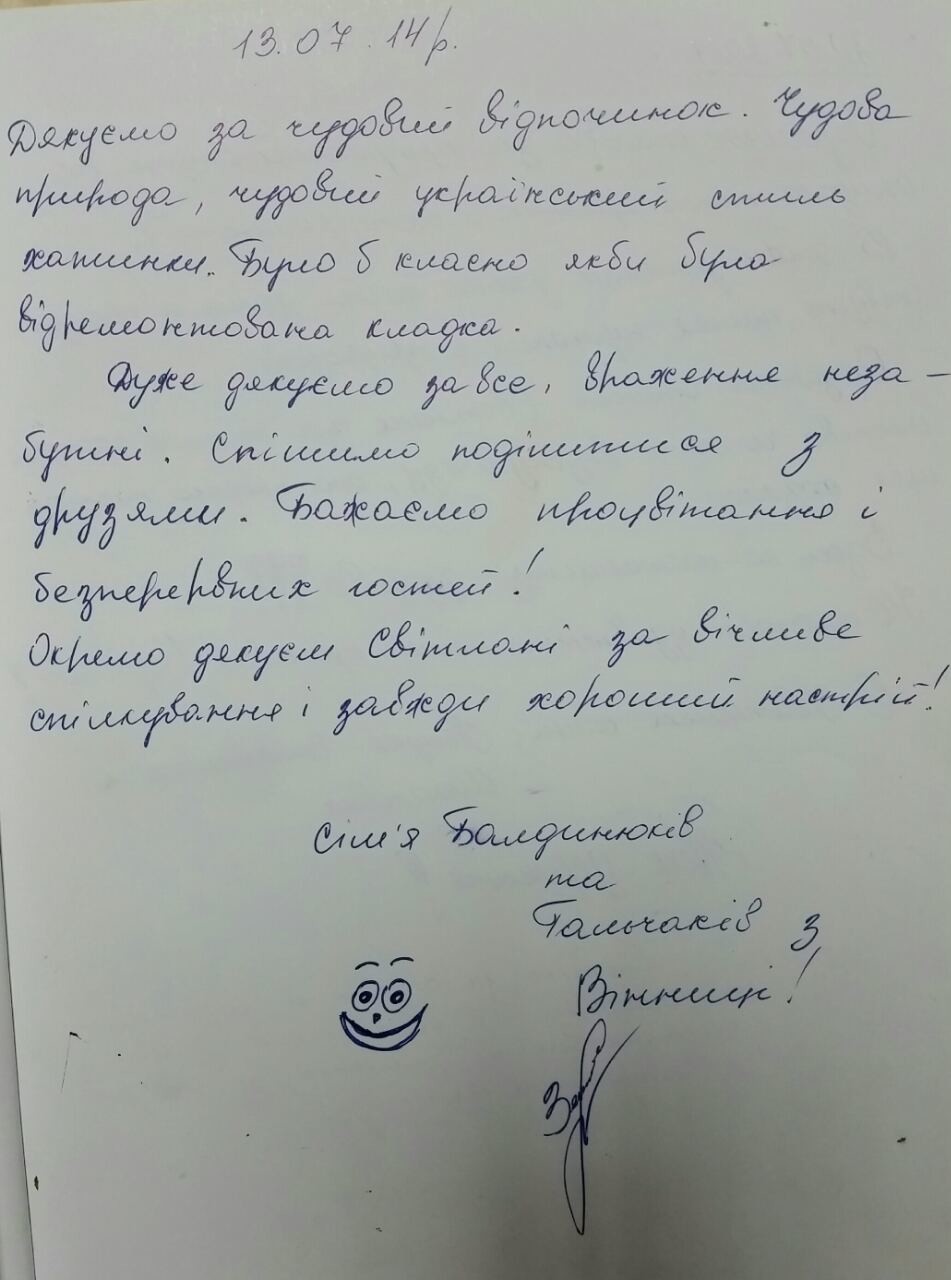 13.07.14р.
Дякуємо за чудовий відпочинок. Чудова
природа, чудовий український стиль
хатинки. Було б класно якби була
відремонтована кладка.
Дуже дякуємо за все, враження неза-
бутні. Спішимо поділитися з
друзями. Бажаємо процвітання і
безперервних гостей!
Окремо дякуєм Світлані за вічливе
спілкування і завжди хороший настрій!
Сім'я Балдинюків
та
Гальчаків з
Вінниці!